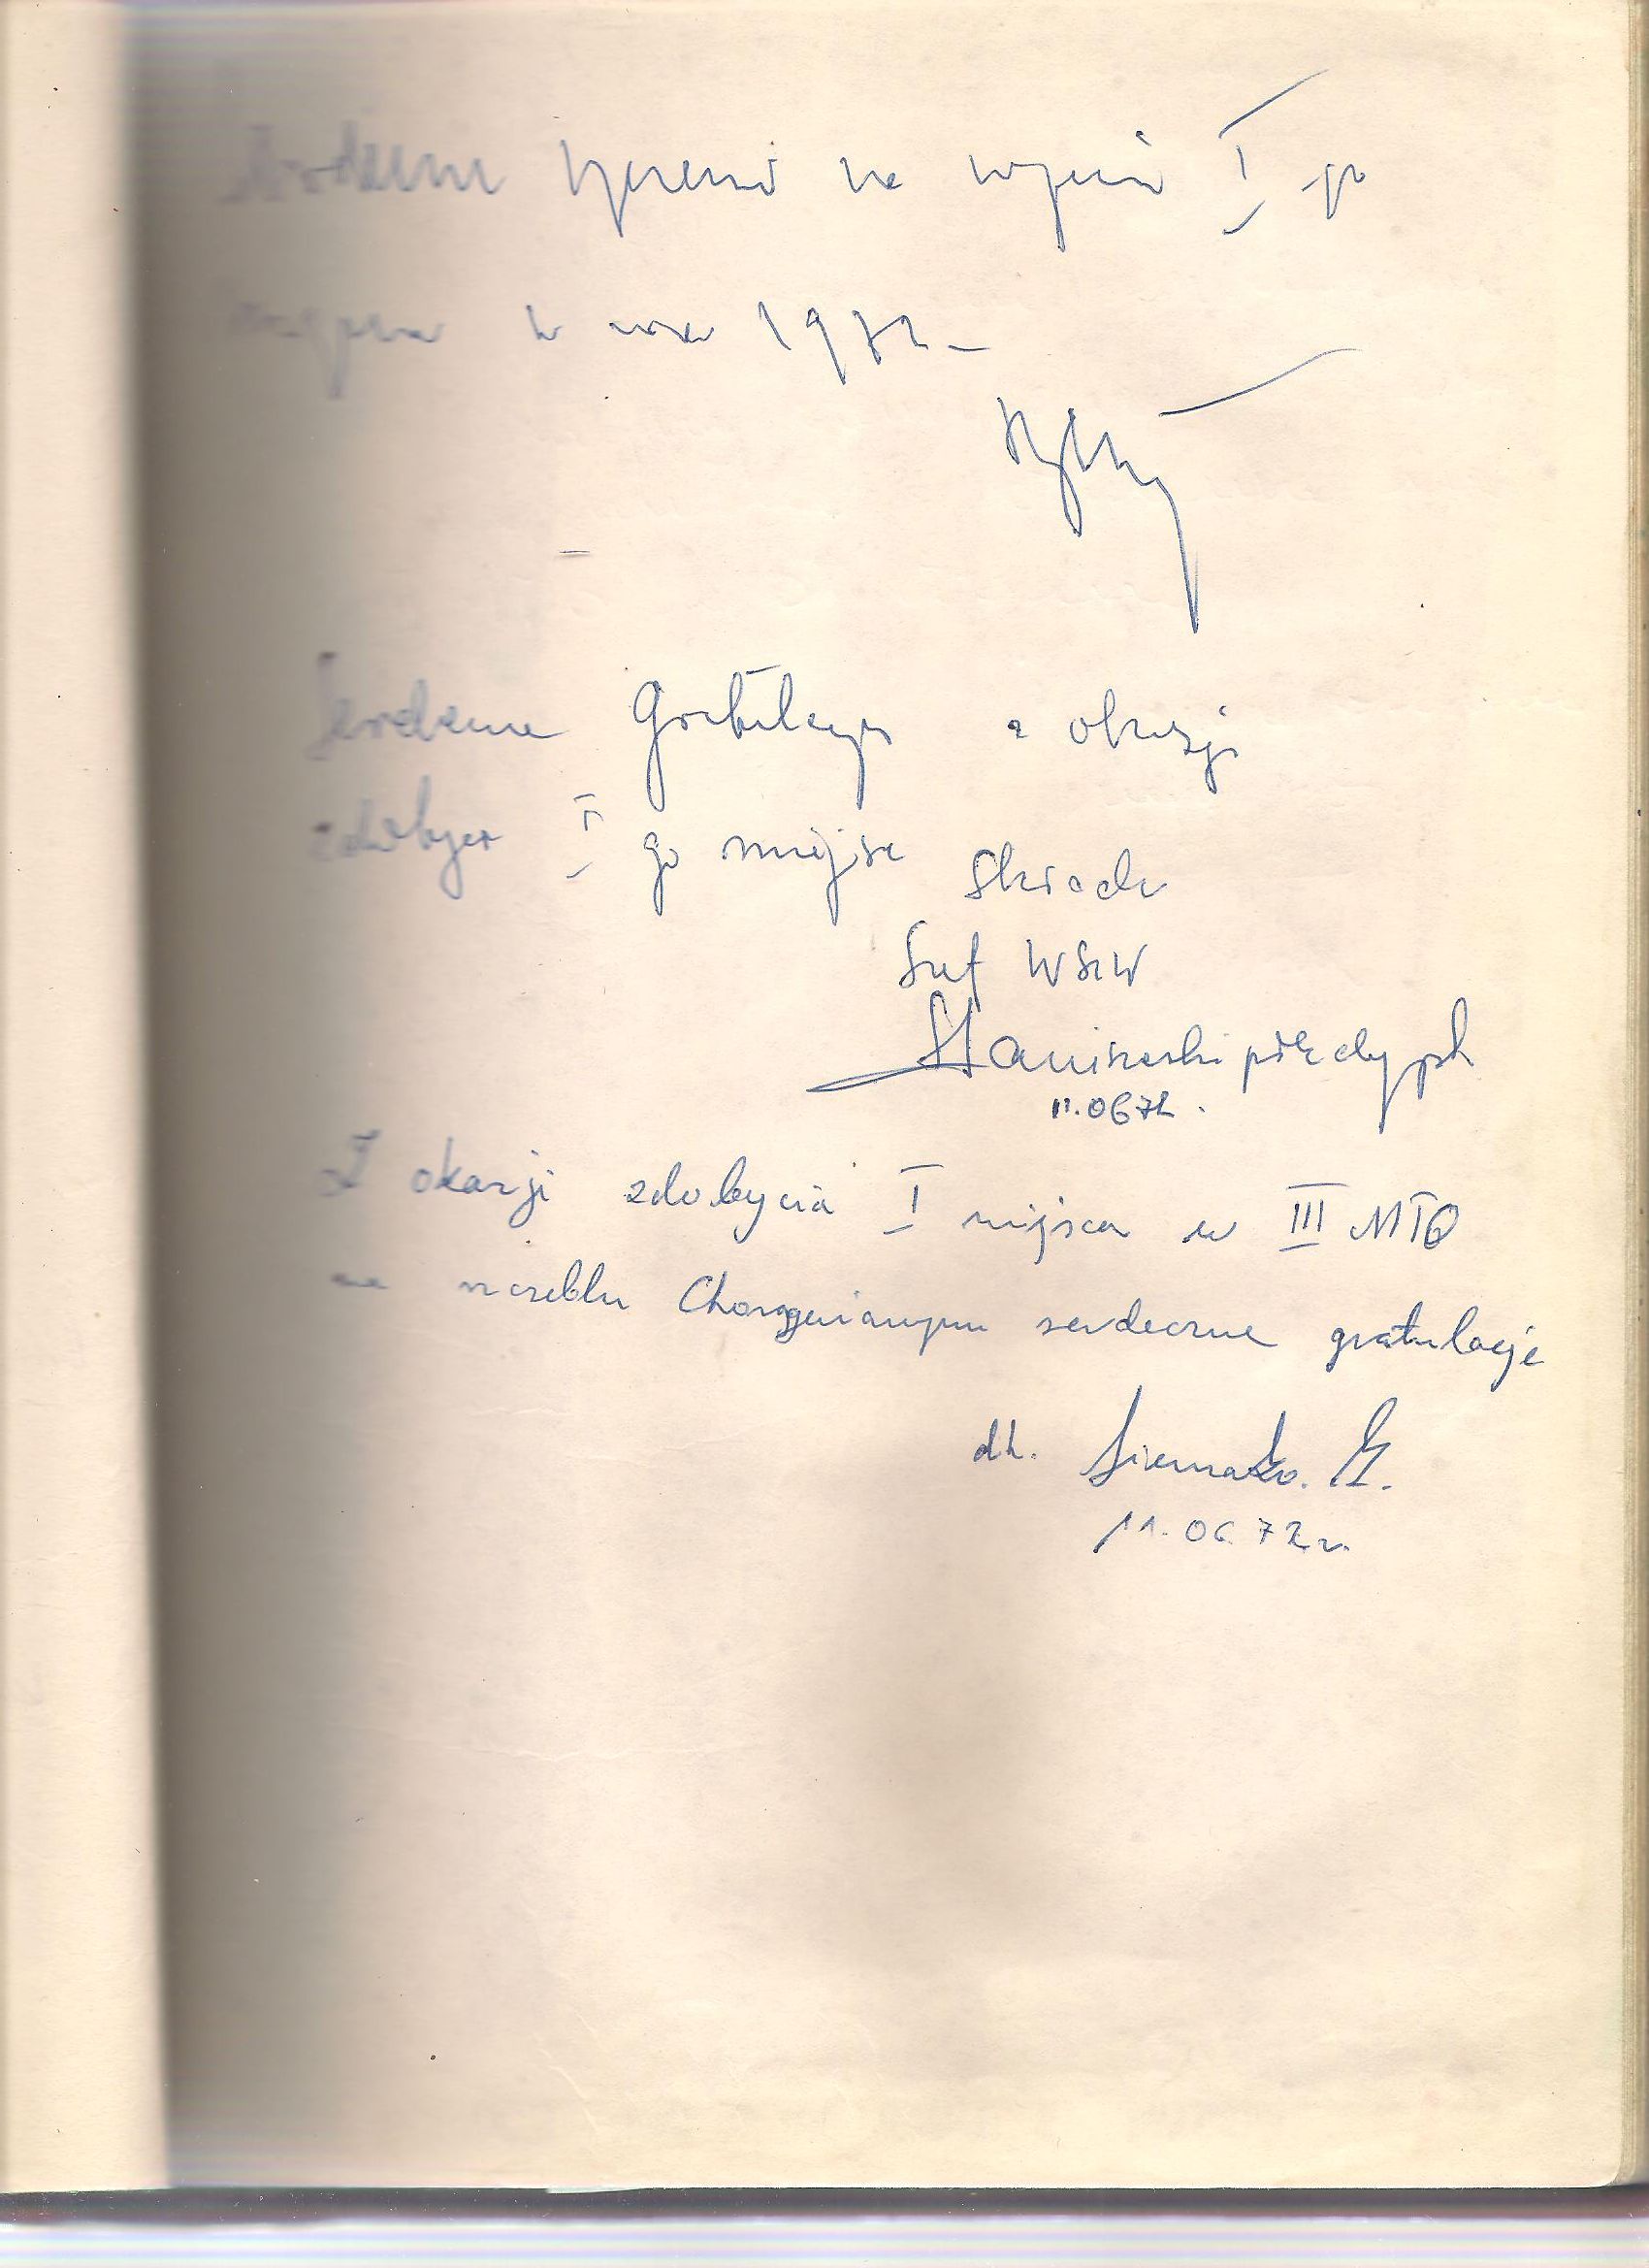 Serdeczne życzenia na wyjściu I go
miejsca w roku 1972 –
Serdeczne Gratulacje z okazji
zdobycia I go miejsca składa
Szef WSzW
Staniszewski płk dypl
11.06 72 .
Z okazji zdobycia I miejsca w III MTO
na szczeblu Chorągwianym serdeczne gratulacje
dh.
11.06.72 r.